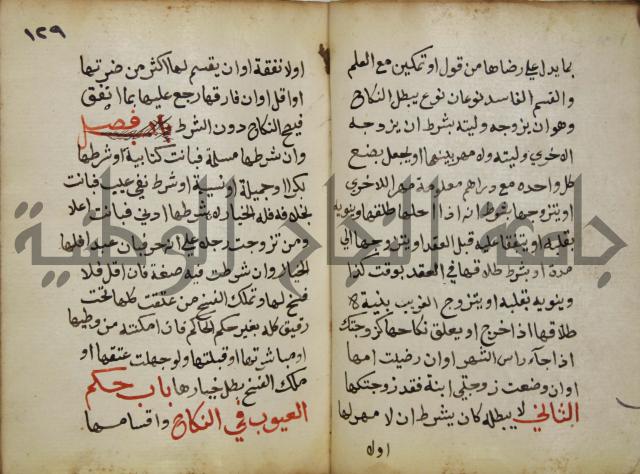 بما يدل على رضاها من قول او تمكين مع العلم
والقسم الفاسد نوعان نوع يبطل النكاح
وهو ان يزوجه وليته بشرط ان يزوجه
الاخر وليته ولا مهر بينهما او يجعل بضع
كل واحدة مع دراهم معلومة مهر اللاخرى
او يتزوجها بشرط انه اذا احلها طلقها وينويه
بقلبه او يتفقا عليه قبل العقد او يتزوجها الى
مدة او يشرط طلاقها في العقد بوقت كذا
وينويه بقلبه او يتزوج الغريب بنية
طلاقها اذا خرج او يعلق نكاحها كزوجتك
اذا جاء راس الشهر او ان رضيت امها
او ان وضعت زوجتي ابنة فقد زوجتكها
الثاني لا يبطله كان يشرط ان لا مهر لها
اولا
١٢٩
اولا نفقة او ان يقسم لها اكثر من ضرتها
او اقل او ان فارقها رجع عليها بما انفق
فيصح النكاح دون الشرط فصل
وان شرطها مسلمة فبانت كتابية او شرطها
بكرا او جميلة او نسيبة او شرط نفي عيب فبانت
بخلافه فله الخيار لا ان شرطها ادنى فبانت اعلا
ومن تزوجت رجلا على انه حر فبان عبدا فلها
الخيار وان شرطت فيه صفة فبان اقل فلا
فسخ لها وتملك الفسخ من عتقت كلها تحت
رقيق كله بغير حكم الحاكم فان امكنته من وطيها
او مباشرتها او قبلتها ولو جهلت عتقها او
ملك الفسخ بطل خيارها باب حكم
العيوب في النكاح واقسامها
جامعة النجاح الوطنية